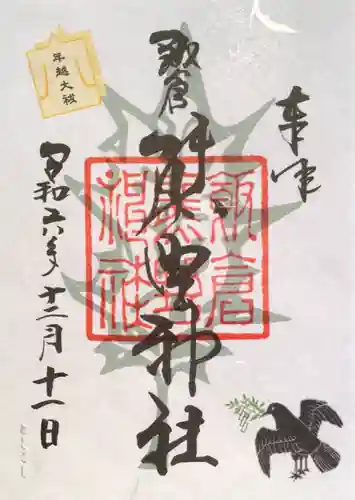 奉拝
飯倉
熊野神社
飯倉
熊野
神社
令和六年十二月十一日
年越大祓
としこし